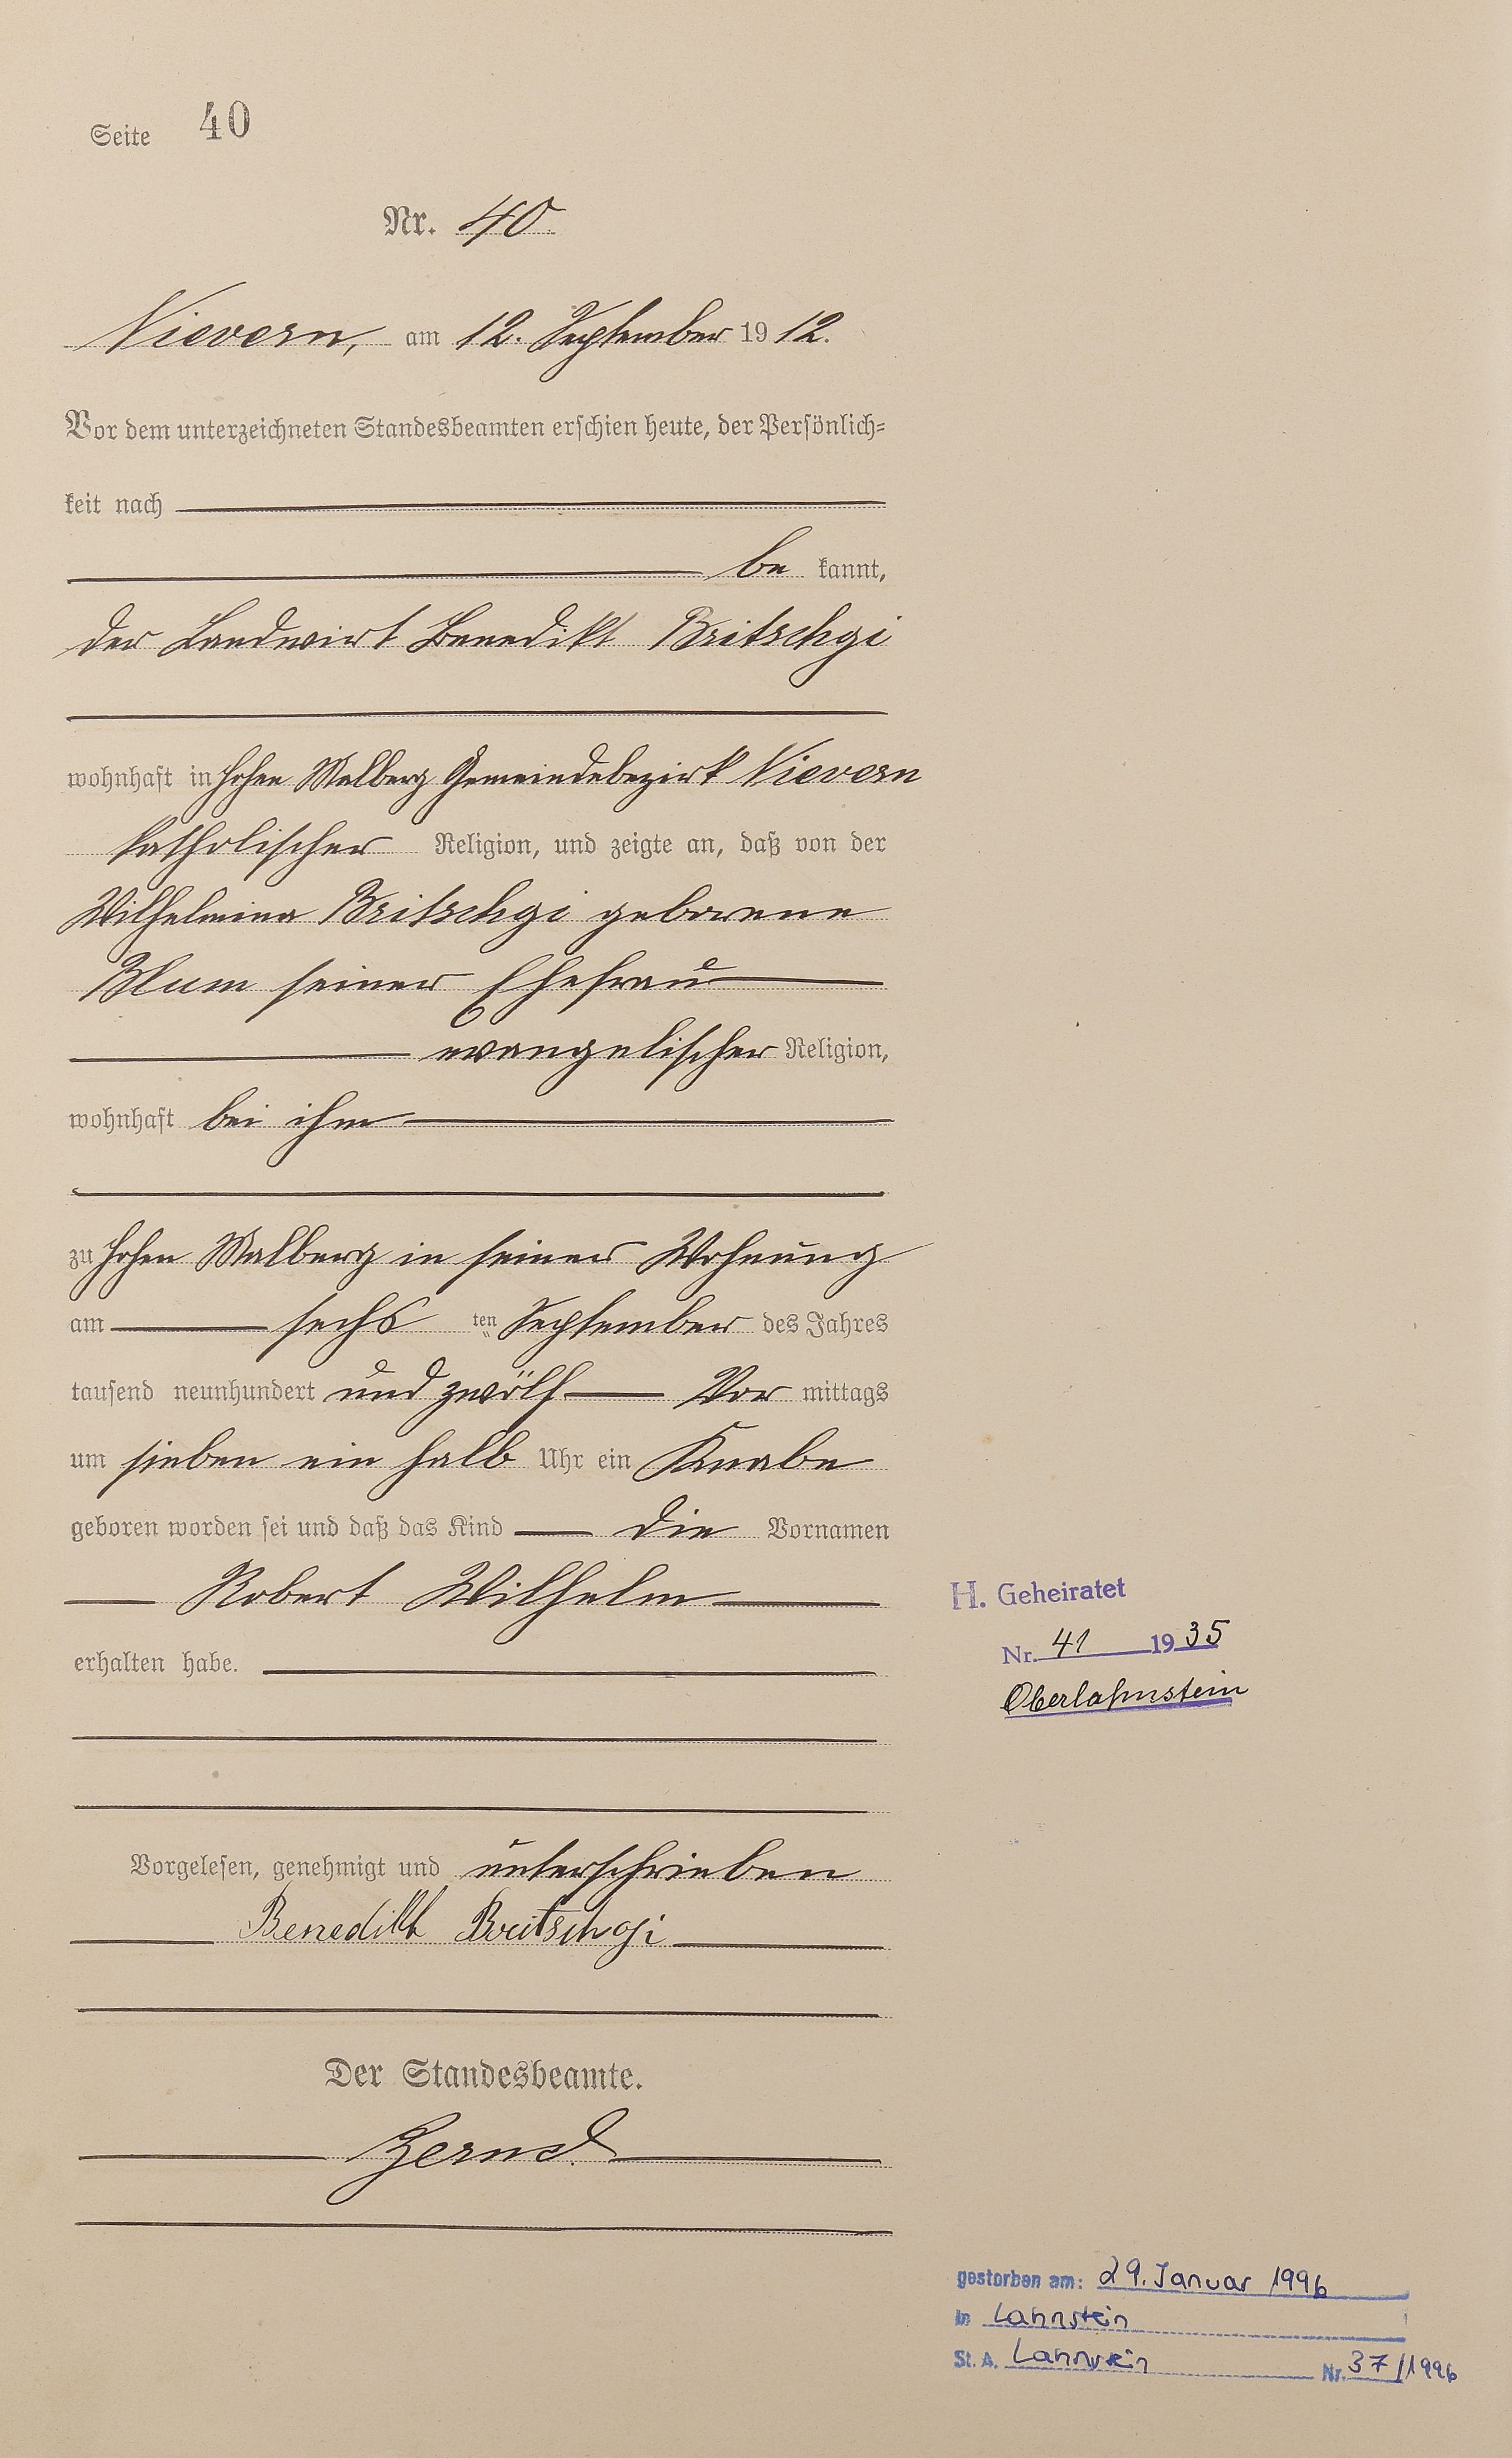 Seite 40
Nr. 40.
Nievern, am 12. September 1912.
Vor dem unterzeichneten Standesbeamten erschien heute, der Persönlich-
keit nach
be kannt,
der Landwirt Benedikt Britschgi
wohnhaft in Hohen Malberg Gemeindebezirk Nievern
katholischer Religion, und zeigte an, daß von der
Wilhelmina Britschgi geborene
Blum seiner Ehefrau
evangelischer Religion,
wohnhaft bei ihm
zu Hohen Malberg in seiner Wohnung
am sechs ten September des Jahres
tausend neunhundert und zwölf Vor mittags
um sieben ein halb Uhr ein Knabe
geboren worden sei und daß das Kind die Vornamen
Robert Wilhelm
erhalten habe.
H. Geheiratet
Nr. 41 1935
Oberlahnstein
Vorgelesen, genehmigt und unterschrieben
Benedikt Britschgi
Der Standesbeamte.
gestorben am: 29. Januar 1996
in Lahnstein
St. A. Lahnstein Nr. 37/1996